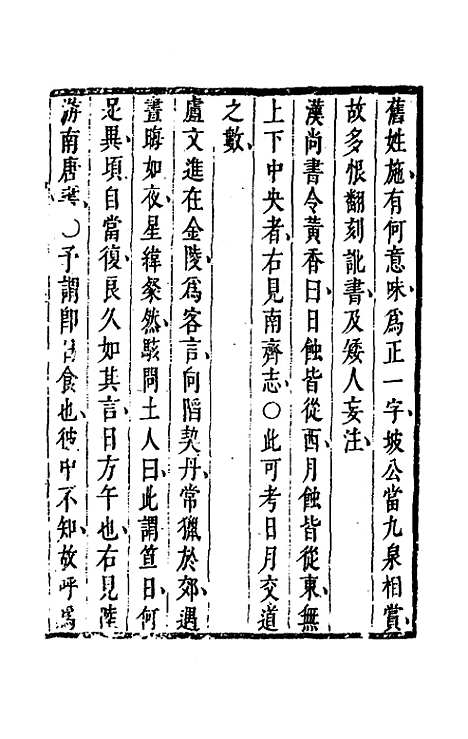 舊姓施有何意味爲正一字坡公當九泉相賞
故多恨翻刻訛書及矮人妄注
漢尚書令黃香曰日蝕皆從西月蝕皆從東無
上下中央者右見南齊志○此可考日月交道
之數
盧文進在金陵爲客言向䧟契丹常獵於郊遇
晝晦如夜星緯粲然駭問土人曰此謂笪日何
足異頃自當復良久如其言日方午也右見陸
游南唐書○予謂卽日食也彼中不知故呼爲